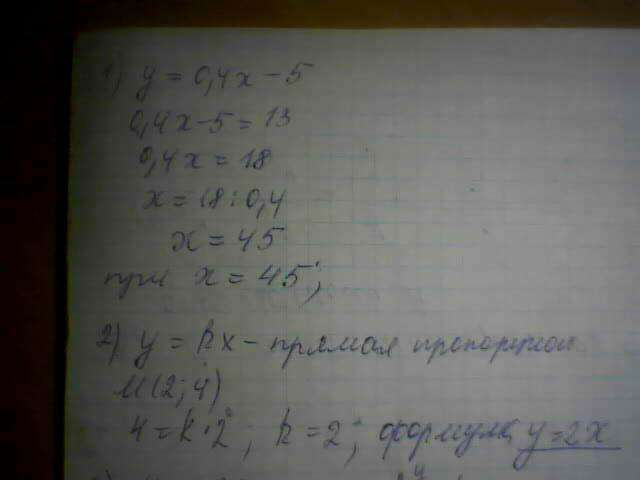 1) y = 0,4x - 5
0,4x - 5 = 13
0,4x = 18
x = 18 : 0,4
x = 45
при x = 45;
2) y = kx - прямая пропорцион
M(2; 4)
4 = k · 2; k = 2; формула y = 2x